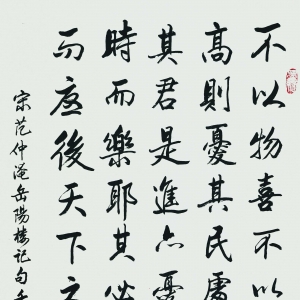 不以物喜不以
高則憂其民處
其君是進亦憂
時而樂耶其必
而後天下之
宋范仲淹岳陽樓記句